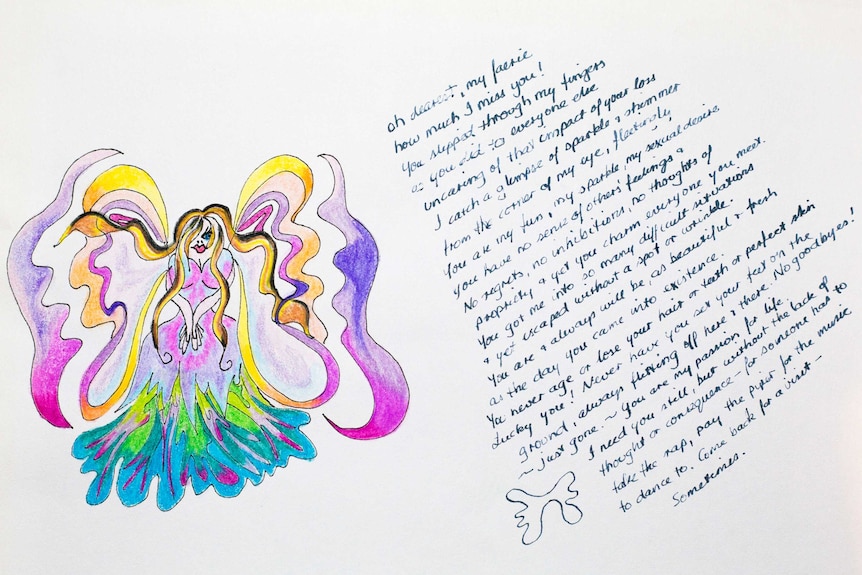 Oh dearest, my faerie
how much I miss you!
You slipped through my fingers
as you did to everyone else
uncaring of that impact of your loss
I catch a glimpse of sparkle & shimmer
from the corner of my eye, fleetingly,
You are my fun, my sparkle, my sexual desire
You have no sense of others' feelings &
No regrets, no inhibitions, no thoughts of
propriety & yet you charm everyone you meet.
You got me into so many difficult situations
& yet escaped without a spot or wrinkle.
You are & always will be, as beautiful & fresh
as the day you came into existence.
You never age or lose your hair or teeth or perfect skin
Lucky you! Never have you set your feet on the
ground, always flitting off here & there. No goodbyes!
~ just gone. ~ You are my passion for life.
I need you still, but without the lack of
thought or consequence - for someone has to
take the rap, pay the piper for the music
to dance to. Come back for a visit -
Sometimes.